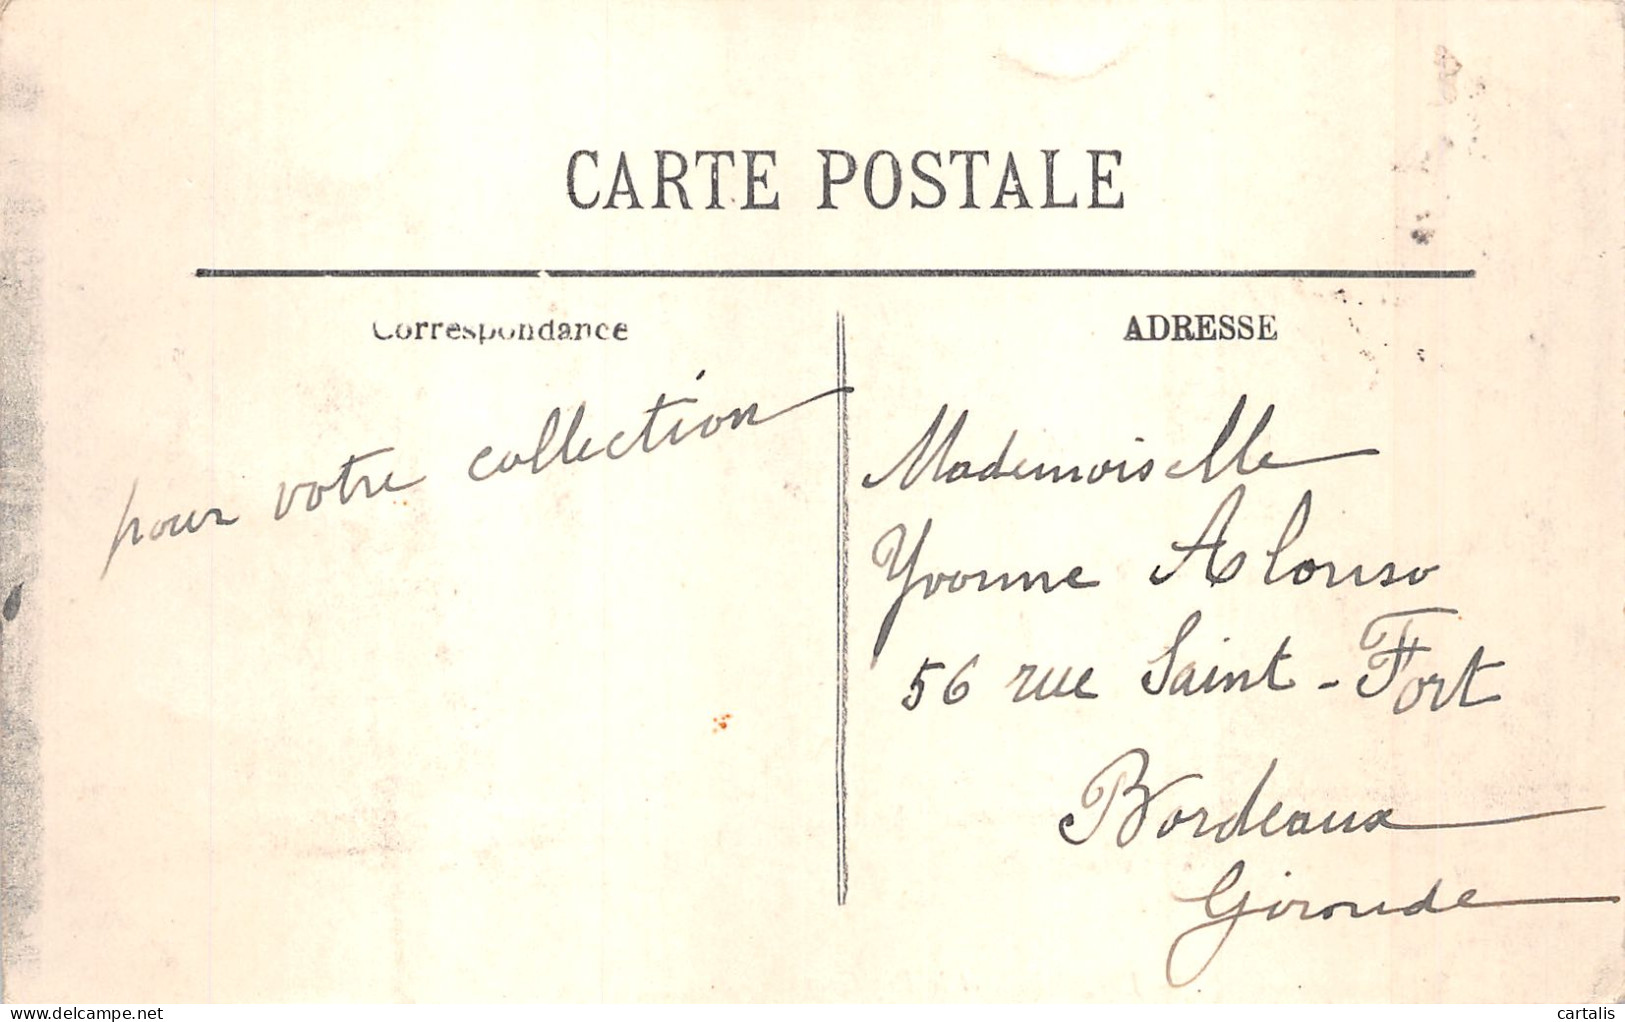 CARTE POSTALE
Correspondance
pour votre collection
ADRESSE
Mademoiselle
Yvonne Alonso
56 rue Saint-Fort
Bordeaux
Gironde
www.delcampe.net
cartalis